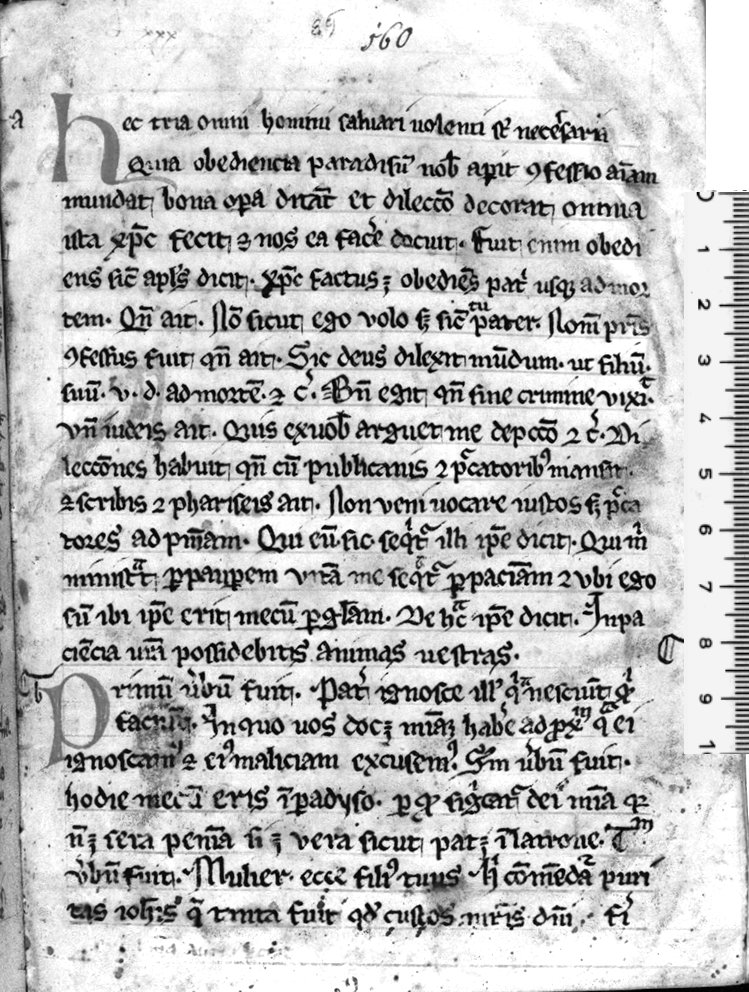 160
a
hec tria omni homini saluari uolenti st̄ necessaria
Quia obediencia paradisū nob̄ apit ꝯfessio aīam
mundat bona opa ditāt et dileccō decorat omnia
ista xp̄c fecit ⁊ nos ea facˀe docuit. Fuit enim obedi
ens sic̄ apl̄s dicit. xp̄c factus ē obediēs patˀ usqꝫ ad mor
tem. Qn̄ ait. Nō sicut ego volo sꝫ sic̄ tu pater.
ꝯfessus fuit qn̄ ait. Sic deus dilexit mūdum. ut filiū.
suū. v. d. ad mortē. ⁊ c̄. Bn̄ egit qn̄ sine crimine vixit.
vn̄ iudeis ait. Quis ex uob̄ arguet me de pccō ⁊ c̄. Di
leccōnes habuit qn̄ cū publicanis ⁊ pˀcatoribꝰ mansit.
⁊ scribis ⁊ phariseis ait. Non veni uocare iustos sꝫ pˀca
tores ad pn̄iam. Qui eū sic seqˀtˀ illi ip̄e dicit. Qui mˀ
ministˀt ꝑ pauꝑem vitā me seqˀtˀ ꝑ paciam̄ ⁊ vbi ego
sū ibi ip̄e erit mecū ꝑ gl̄am. De hˀc ip̄e dicit. In pa
ciēcia urā possidebitis animas uestras.
b
primū uˀbū fuit. Patˀ ignosce illˀ qˀa nesciūt qˀ
faciūt. In quo uos docꝫ miāꝫ habēˀ ad pxīm qˀ ei
ignoscamꝰ ⁊ eiꝰ maliciam excusemꝰ. Scdm uˀbū fuit.
hodie mecū eris ī padyso. ꝑ qˀ sigˀcatˀ dei miā qꝛ
n̄ ē sera penīa si ē vera sicut patꝫ ī latrone. Tm̄
uˀbū fuit. Mulier. ecce filiꝰ tuus hˀ cōmēdatˀ puri
tas ioh̄is qˀ tanta fuit qd̄ custos mr̄is dn̄i. fiˀ